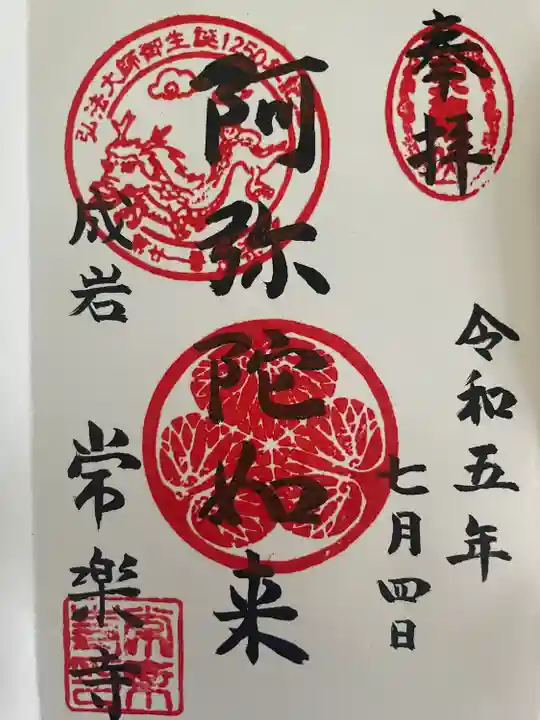 奉拝
令和五年
七月四日
阿弥陀如来
弘法大師御生誕1250年
成岩
常楽寺
常楽